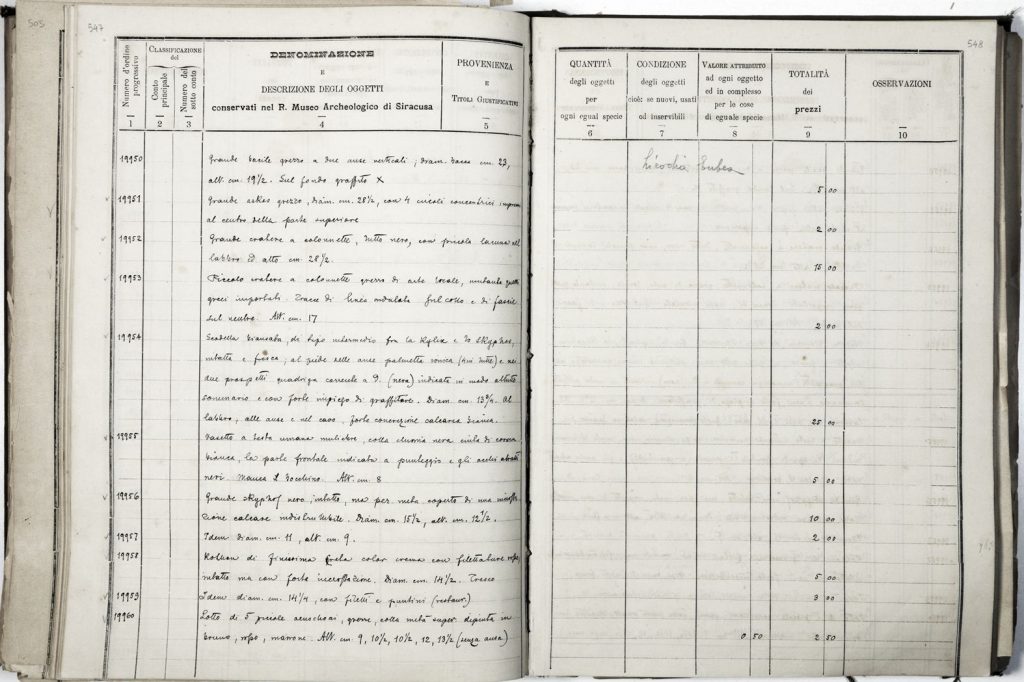 505
547
Numero d'ordine progressivo
CLASSIFICAZIONE del
Conto principale
Numero del sotto conto
DENOMINAZIONE
E
DESCRIZIONE DEGLI OGGETTI
conservati nel R. Museo Archeologico di Siracusa
PROVENIENZA
E
TITOLI GIUSTIFICATIVI
1 2 3 4 5
19950 Grande bacile grezzo a due anse verticali; diam. bocca cm. 23,
alt. cm. 19 1/2. Sul fondo graffito X
19951 Grande askos grezzo, diam. cm. 28 1/2, con 4 circoli concentrici impressi
al centro della parte superiore
19952 Grande cratere a colonnette, tutto nero, con piccola lacuna nel
labbro ed alto cm 28 1/2.
19953 Piccolo cratere a colonnette grezzo di arte locale, imitante quelli
greci importati. Tracce di linea ondulata sul collo e di fascie
sul ventre. Alt. cm. 17
19954 Scodella biansata, di tipo intermedio fra la Kylix e lo Skyphos,
intatta e fresca; al piede delle anse palmetta e nei
due prospetti quadriga corrente a d. (nera) indicata in modo
sommario e con forte impiego di graffiture. Diam. cm. 13 3/4. Al
labbro, alle anse e nel cavo, forte concrezione calcarea bianca.
19955 Vasetto a testa umana muliebre, colla chioma nera cinta di corona
bianca, la parte frontale indicata a punteggio e gli occhi
neri. Manca il bocchino. Alt. cm. 8
19956 Grande skyphos nero, intatto, ma per metà coperto di una incrosta-
zione calcare indistruttibile. Diam. cm. 15 1/2, alt. cm. 12 1/2.
19957 Idem diam. cm. 11, alt. cm. 9.
19958 Kothon di finissima creta color crema con filettature rosse,
intatto ma con forte incrostazione. Diam. cm. 14 1/2.
19959 Idem diam. cm. 14 1/4, con filetti e puntini (restaur.)
19960 Lotto di 5 piccole oenochoai, grezze, colla metà super. dipinta in
bruno, rosso, marrone. Alt. cm. 9, 10 1/2, 10 1/2, 12, 13 1/2 (senza ansa)
548
QUANTITÀ
degli oggetti
per
ogni egual specie
CONDIZIONE
degli oggetti
cioè: se nuovi, usati
od inservibili
VALORE ATTRIBUITO
ad ogni oggetto
ed in complesso
per le cose
di eguale specie
TOTALITÀ
dei
prezzi
OSSERVAZIONI
6 7 8 9 10
Licodia Eubea
5 00
2 00
15 00
2 00
25 00
5 00
10 00
2 00
5 00
3 00
0 50 2 50